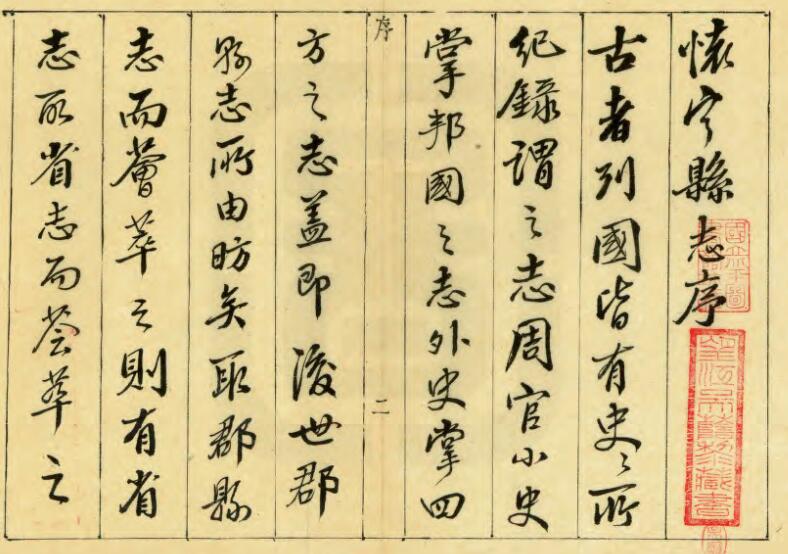 懷宁縣志序
古者列國皆有史々所
紀錄謂之志周官小史
掌邦國之志外史掌四
序
二
方之志盖即後世郡
縣志所由昉矣取郡縣
志而薈萃之則有省
志取省志而荟萃之